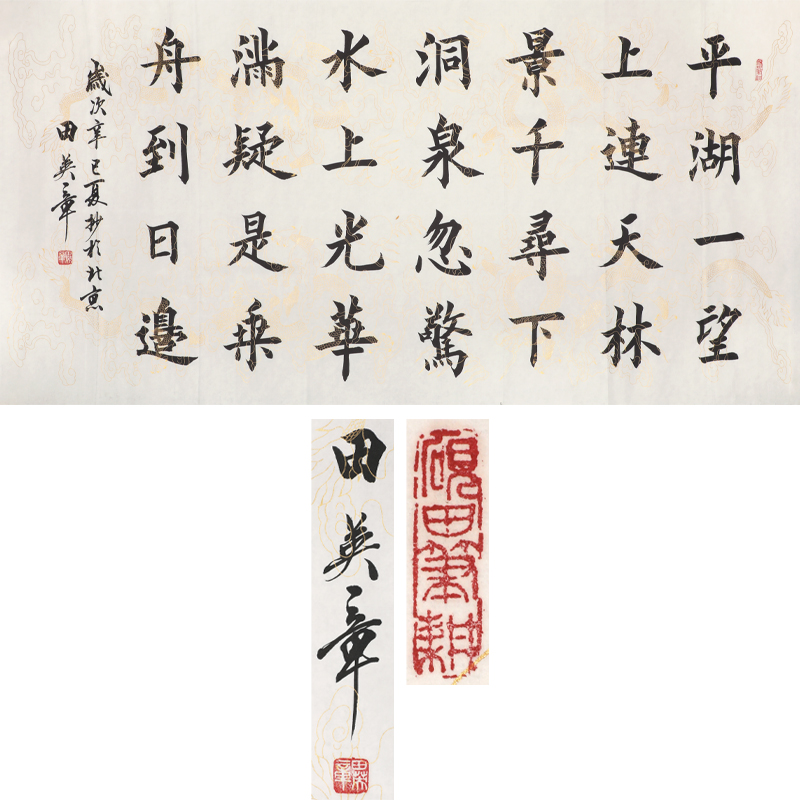 平湖一望
上連天林
景千尋下
洞泉忽驚
水上光華
滿疑是乘
舟到日邊
歲次辛巳夏抄於北京
田英章
田英章
田英章
硯田筆耕